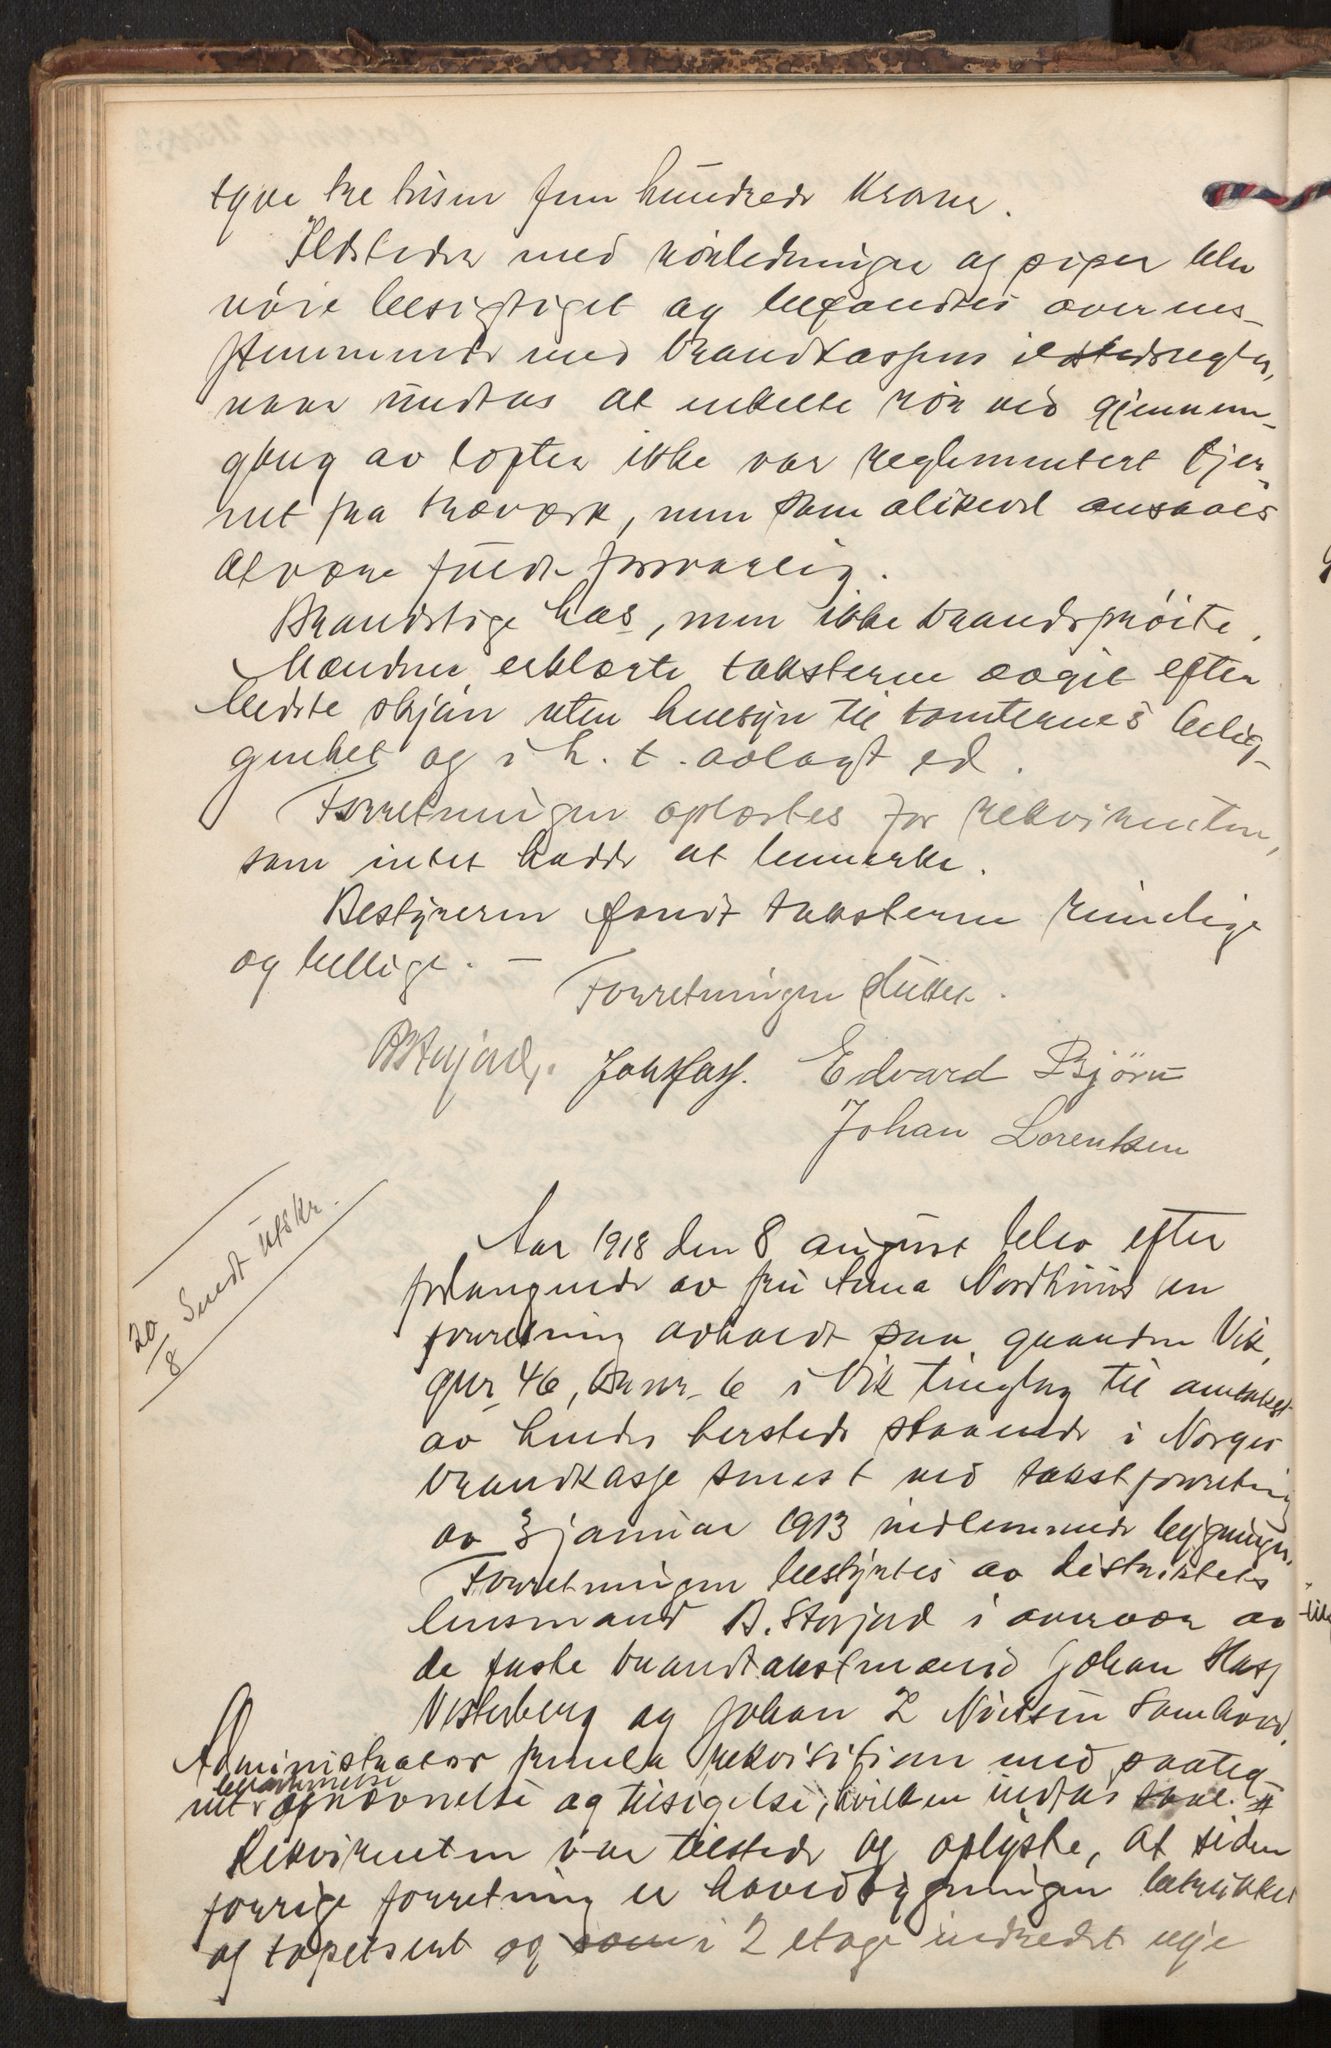 tyve tre tusen fem hundrede kroner.
Ildsteder med rörledninger og piper blev
nöie besigtiget og befandtes overens-
stemmende med brandkassens ildstedsregler,
naar undtas at enkelte rör ved gjennem-
gang av lofter ikke var reglementert fjer-
net fra træværk, men som alikevel ansaaes
at være fuldt forsvarlig.
Brandstige has, men ikke brandspröite.
Mændene erklærte taksterne avgit efter
bedste skjön uten hensyn til tomternes belig-
genhet og i h. t. avlagt ed.
Forretningen oplæstes for rekvirenten,
som intet hadde at bemerke.
Bestyreren fandt taksterne rimelige
og billige. —
Forretningen sluttet.
B Storjord. Joh Hass. Edvard Bjørn
Johan Lorentsen
20/8 Sendt utskr.
Aar 1918 den 8 august blev efter
forlangende av fru Anna Nordhuus en
forretning avholdt paa gaarden Vik,
gnr. 46, br. nr. 6 i Vik tinglag til omtakst
av hendes hersteds staaende i Norges
brandkasse senest ved takstforretning
av 3 januar 1913 indlemmede bygninger.
Forretningen bestyrtes av distriktets
lensmand B. Storjord i overvær av
de faste brandtakstmænd Johan Hass
Vesterberg og Johan L Nielsen Somhovd.
Administrator fremla rekvisition med paateg-
net berammelse opnævnelse og tilsigelse, hvilken indtas
Rekvirenten var tilstede og oplyste, at siden
forrige forretning er hovedbygningen betrukket
og tapetsert og som i 2 etage indredet nye